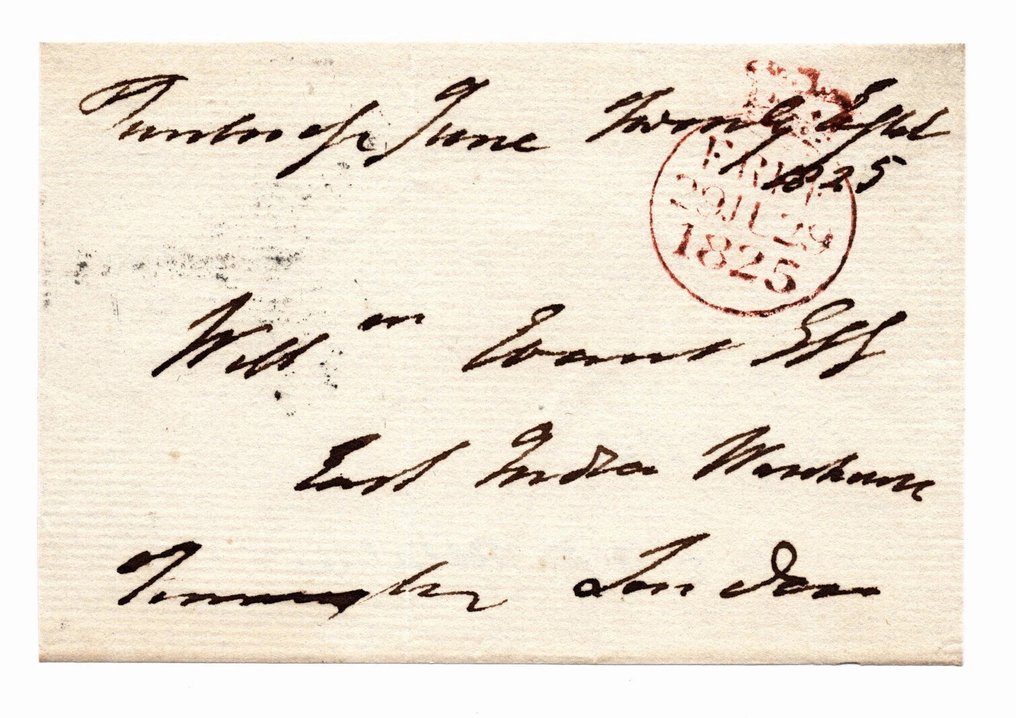 Tunbridge June Twenty Eight
1825
FREE
29 JU 29
1825
Will m Evans Esq
East India Warehouse
London